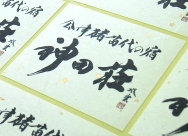 会津猪苗代の宿
神田荘